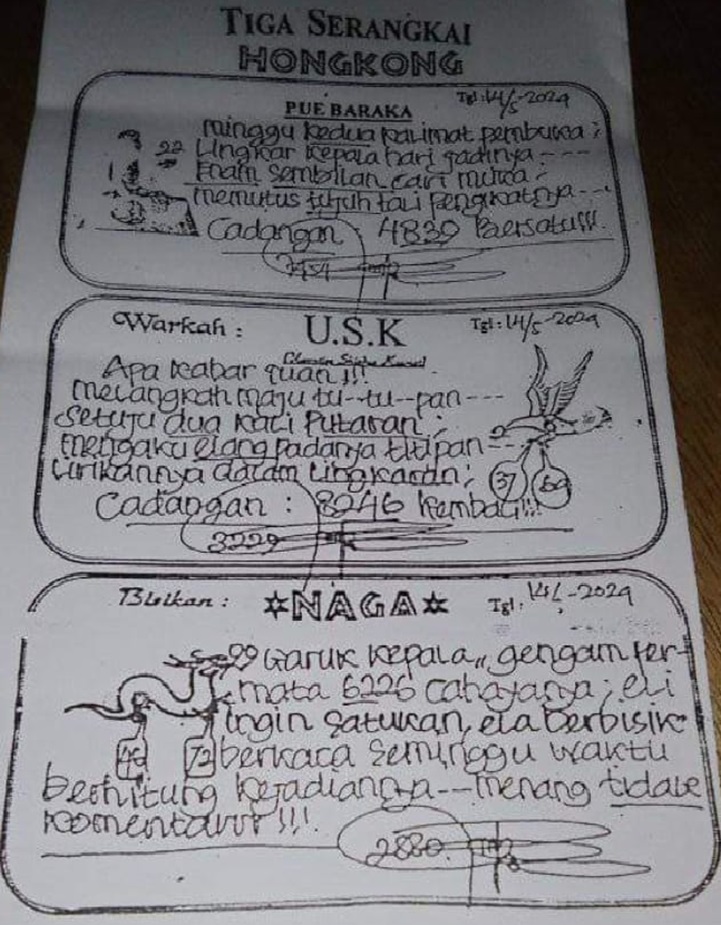 TIGA SERANGKAI
HONGKONG
PUE BARAKA
Tgl: 14/5-2024
minggu kedua kalimat pembuka;
22 Lingkar kepala hari jadinya----
Enam sembilan cari muka;
memutus tujuh tali pengikatnya---
Cadangan : 4839 Bersatu!!!
Warkah : U.S.K Tgl: 14/5-2024
Apa kabar tuan!!!
melangkah maju tu--tu--pan---
setuju dua kali Putaran;
mengaku elang padanya titipan---
Lirikannya dalam lingkaran;
37 69
Cadangan : 8246 kembali!!!
3229
Bisikan : NAGA Tgl: 14/5-2024
99 Garuk kepala,, gengam per-
mata 6226 cahayanya; eli
ingin satukan, ela berbisik
46 73 berkaca seminggu waktu
berhitung kejadiannya---menang tidak
komentar!!!
2880